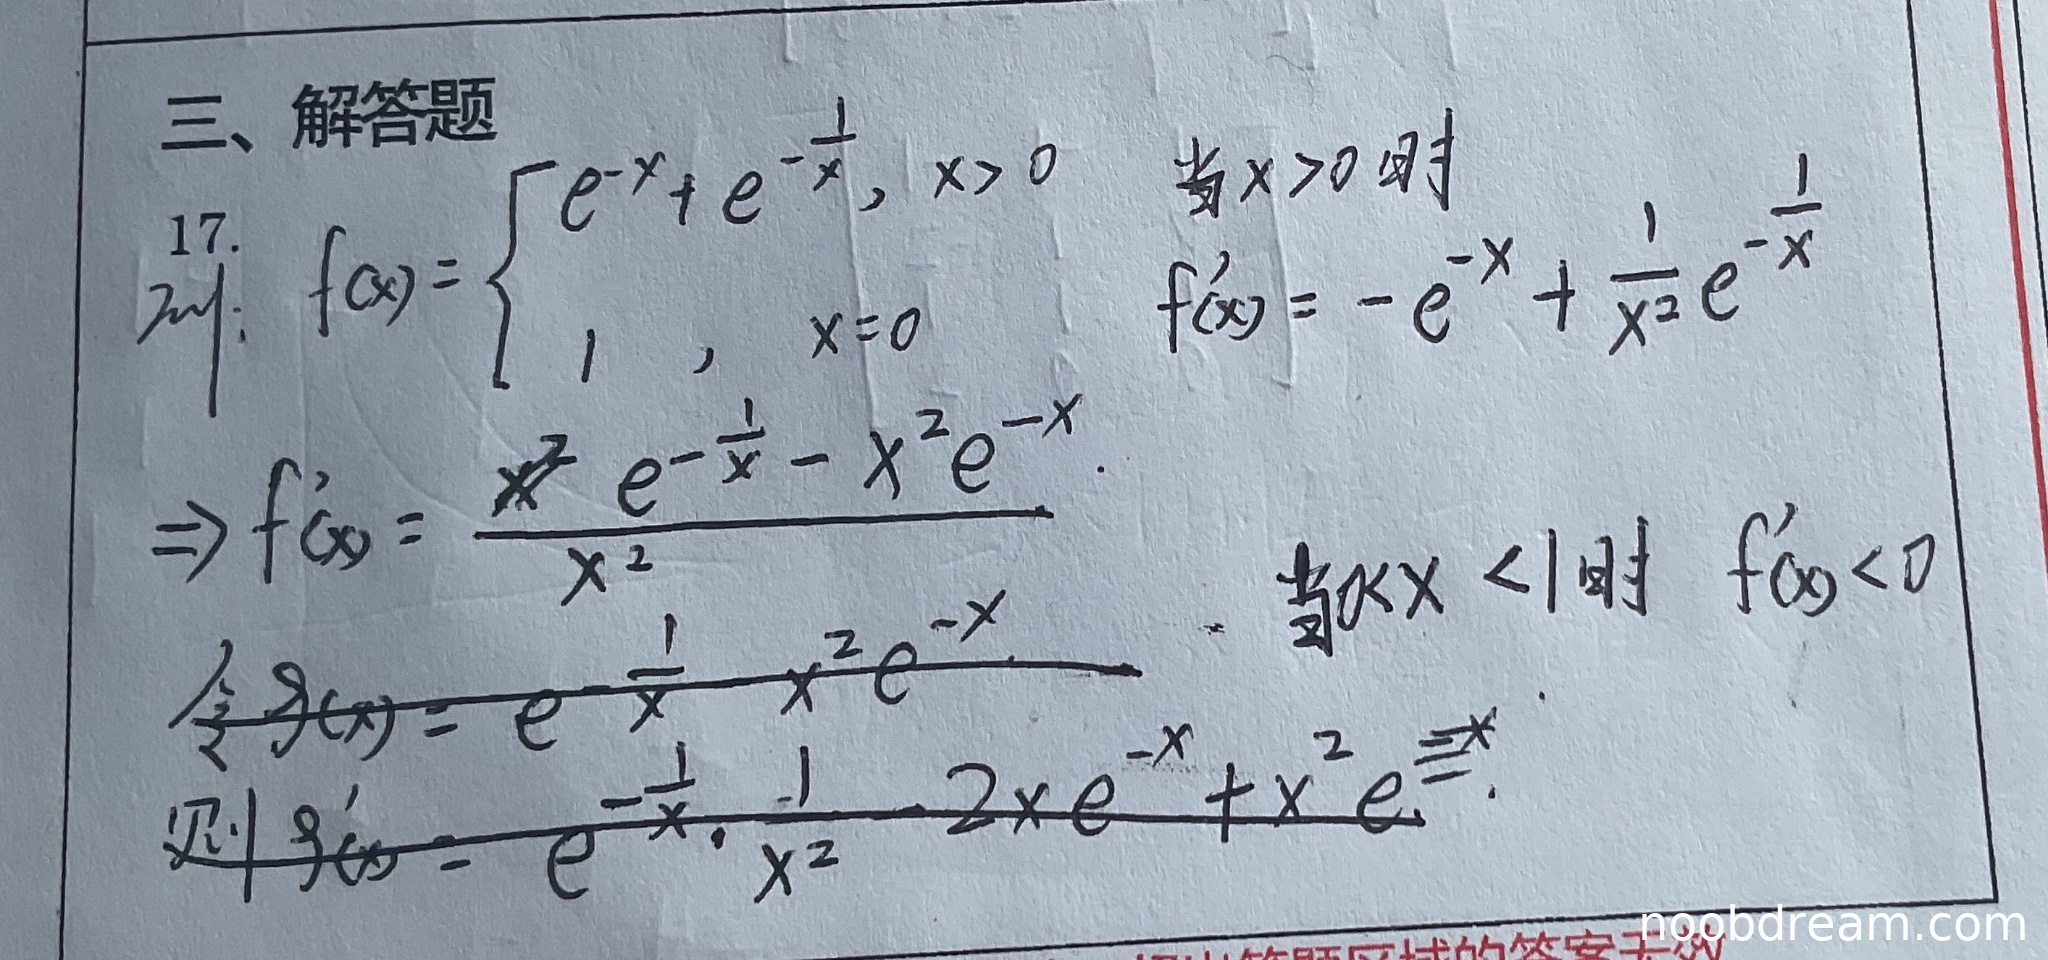 三、解答题
17.
f(x) = { e^{-x} + e^{-\frac{1}{x}}, x>0
1 , x=0
当x>0时
f'(x) = -e^{-x} + \frac{1}{x^2} e^{-\frac{1}{x}}
⇒ f'(x) = \frac{e^{-\frac{1}{x}} - x^2 e^{-x}}{x^2}.
当0<x<1时 f'(x)<0
令g(x) = e^{-\frac{1}{x}} - x^2 e^{-x}
则g'(x) = e^{-\frac{1}{x}} · \frac{1}{x^2} - 2xe^{-x} + x^2 e^{-x}.
noobdream.com